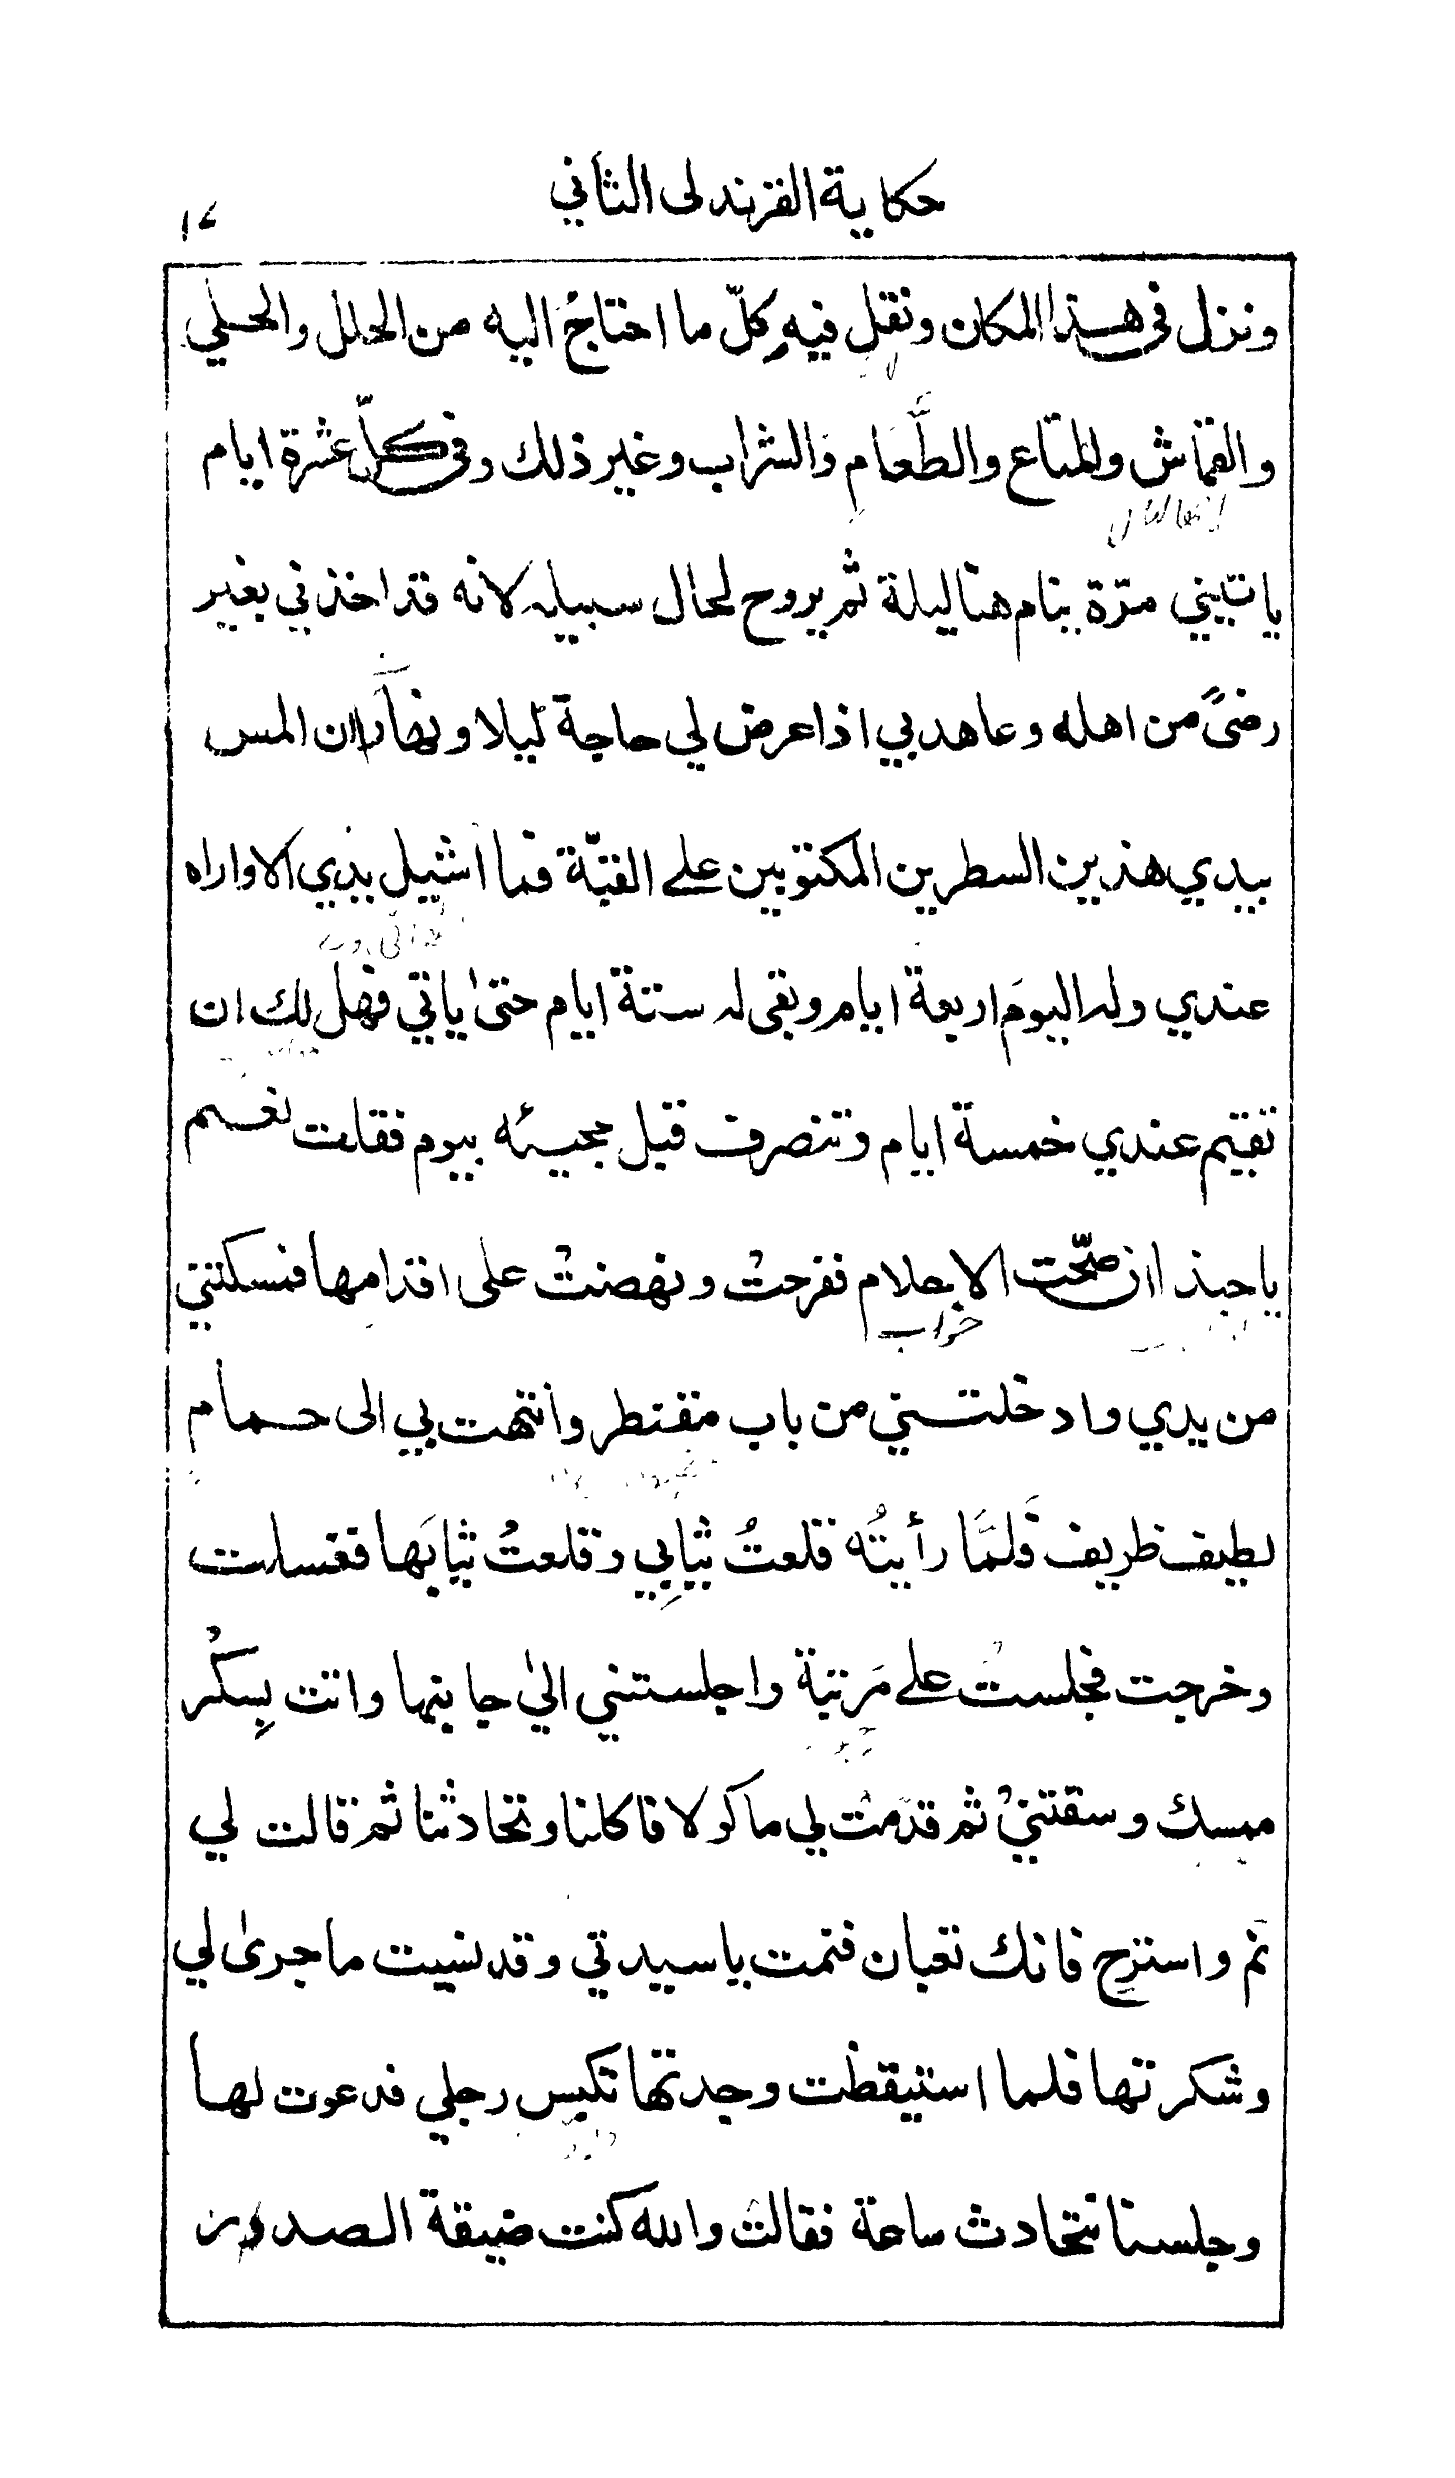 حكاية القرندلى الثاني
١٧
ونزل فى هذا المكان ونقل فيه كلّ ما احتاجُ اليه من الحلل والحلي
والقماش والمتاع والطَّعَام والشراب وغير ذلك وفى كلّ عشرة ايام
ياتيني مرّة ينام هنا ليلة ثم يروح لحال سبيله لانه قد اخذني بغير
رضىً من اهله وعاهدني اذا عرض لي حاجة ليلا ونهاراً ان المس
بيدي هذين السطرين المكتوبين على القبّة فما اشيل يدي الا واراه
عندي وله اليوم اربعة ايام وبقى له ستة ايام حتىٰ ياتي فهل لك ان
تقيم عندي خمسة ايام وتنصرف قبل مجيئه بيوم فقلت نعم
يا حبذا ان صحّت الاحلام ففرحتُ ونهضتُ على اقدامها فمسكتني
خواب
من يدي وادخلتني من باب مقنطر وانتهت بي الى حمام
لطيف ظريف فَلمَّا رأيتُه قلعتُ ثيابِي وقلعتُ ثيابَها فغسلت
وخرجت فجلست على مَرتبة واجلستني الىٰ جانبها واتت بِسكْر
ممسك وسقتني ثم قدّمت لي ماكولا فاكلنا وتحادثنا ثم قالت لي
نَم واسترح فانك تعبان فنمت يا سيدتي وقد نسيت ما جرىٰ لي
وشكرتها فلما استيقظت وجدتها تكبس رجلي فدعوت لها
وجلسنا نتحادث ساعة فقالت والله كنت ضيقة الصدر